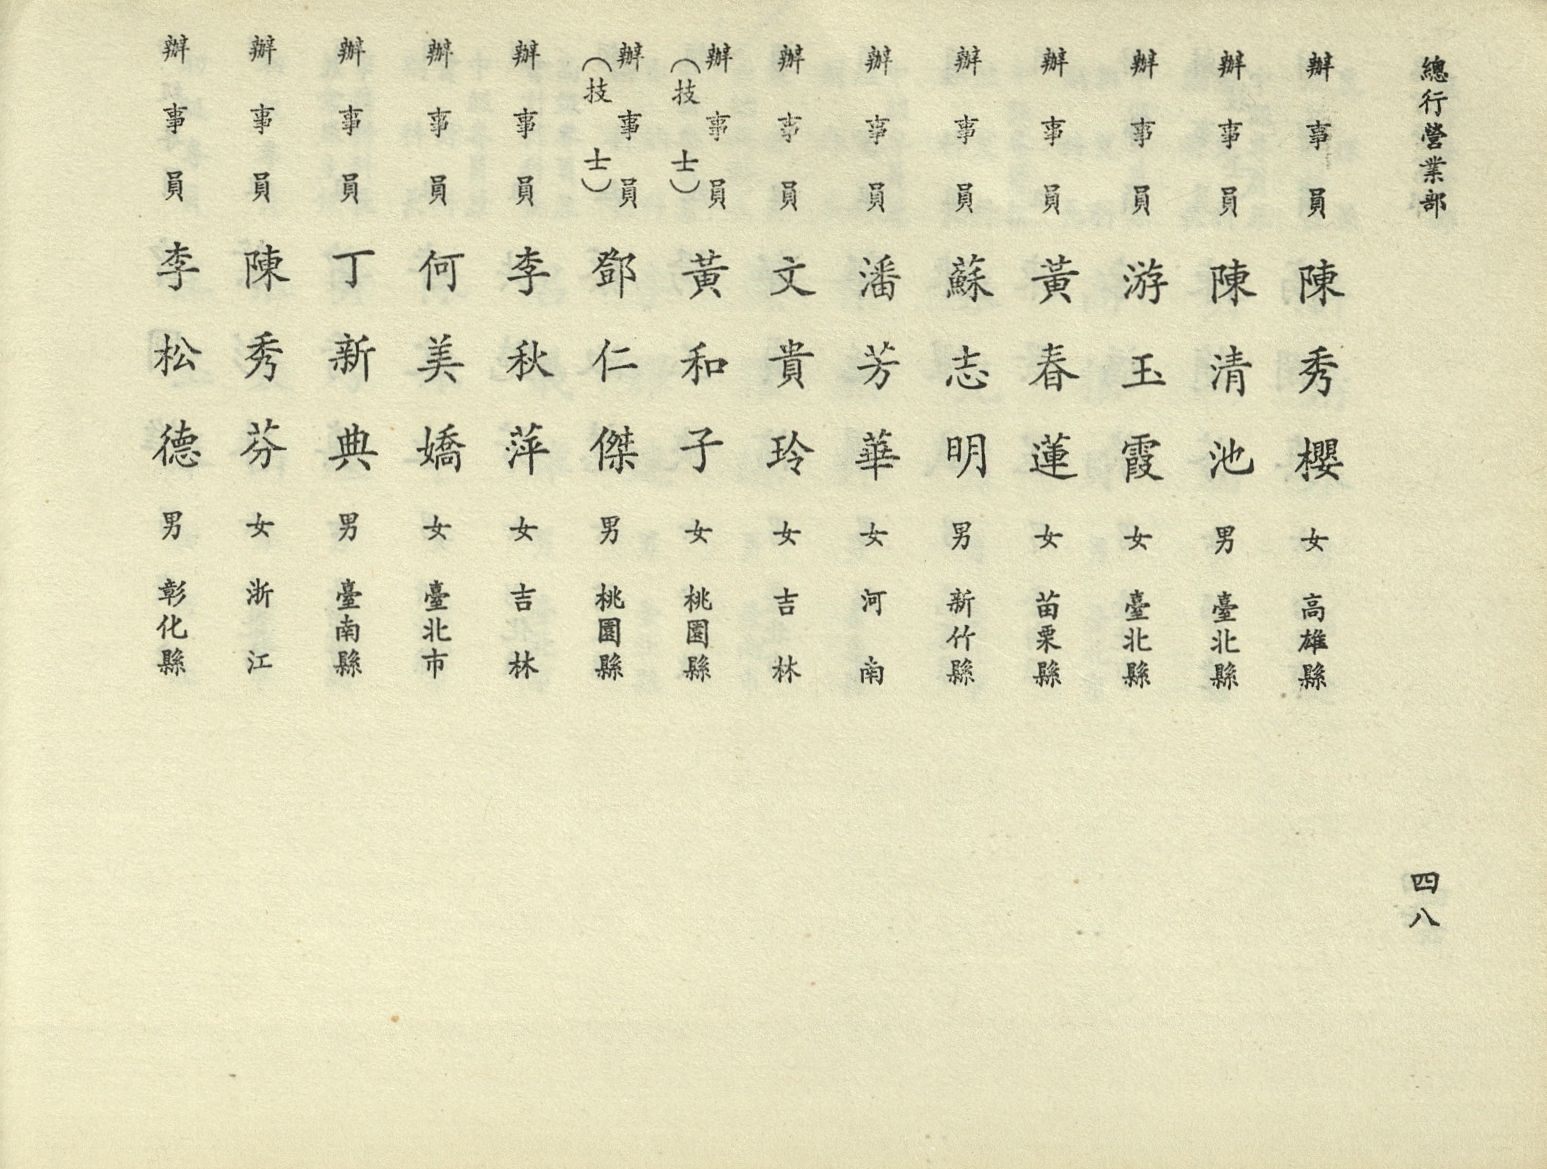 總行營業部
四八
辦事員 陳秀櫻 女 高雄縣
辦事員 陳清池 男 臺北縣
辦事員 游玉霞 女 臺北縣
辦事員 黃春蓮 女 苗栗縣
辦事員 蘇志明 男 新竹縣
辦事員 潘芳華 女 河南
辦事員 文貴玲 女 吉林
辦事員(技士) 黃和子 女 桃園縣
辦事員(技士) 鄧仁傑 男 桃園縣
辦事員 李秋萍 女 吉林
辦事員 何美嬌 女 臺北市
辦事員 丁新典 男 臺南縣
辦事員 陳秀芬 女 浙江
辦事員 李松德 男 彰化縣